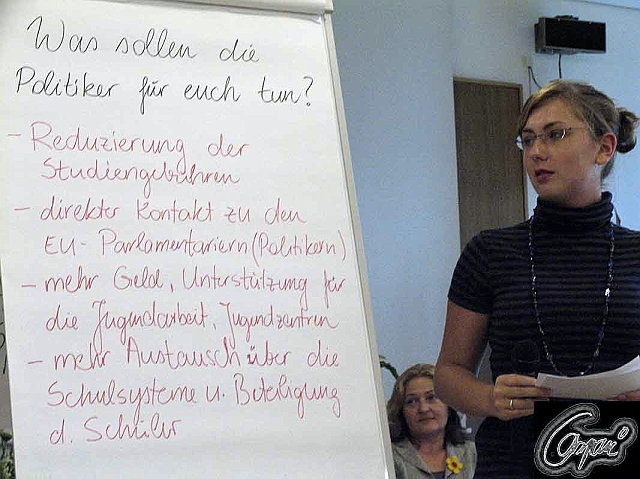 Was sollen die
Politiker für euch tun?
- Reduzierung der
Studiengebühren
- direkter Kontakt zu den
EU-Parlamentariern (Politikern)
- mehr Geld, Unterstützung für
die Jugendarbeit, Jugendzentren
- mehr Austausch über die
Schulsysteme u. Beteiligung
d. Schüler